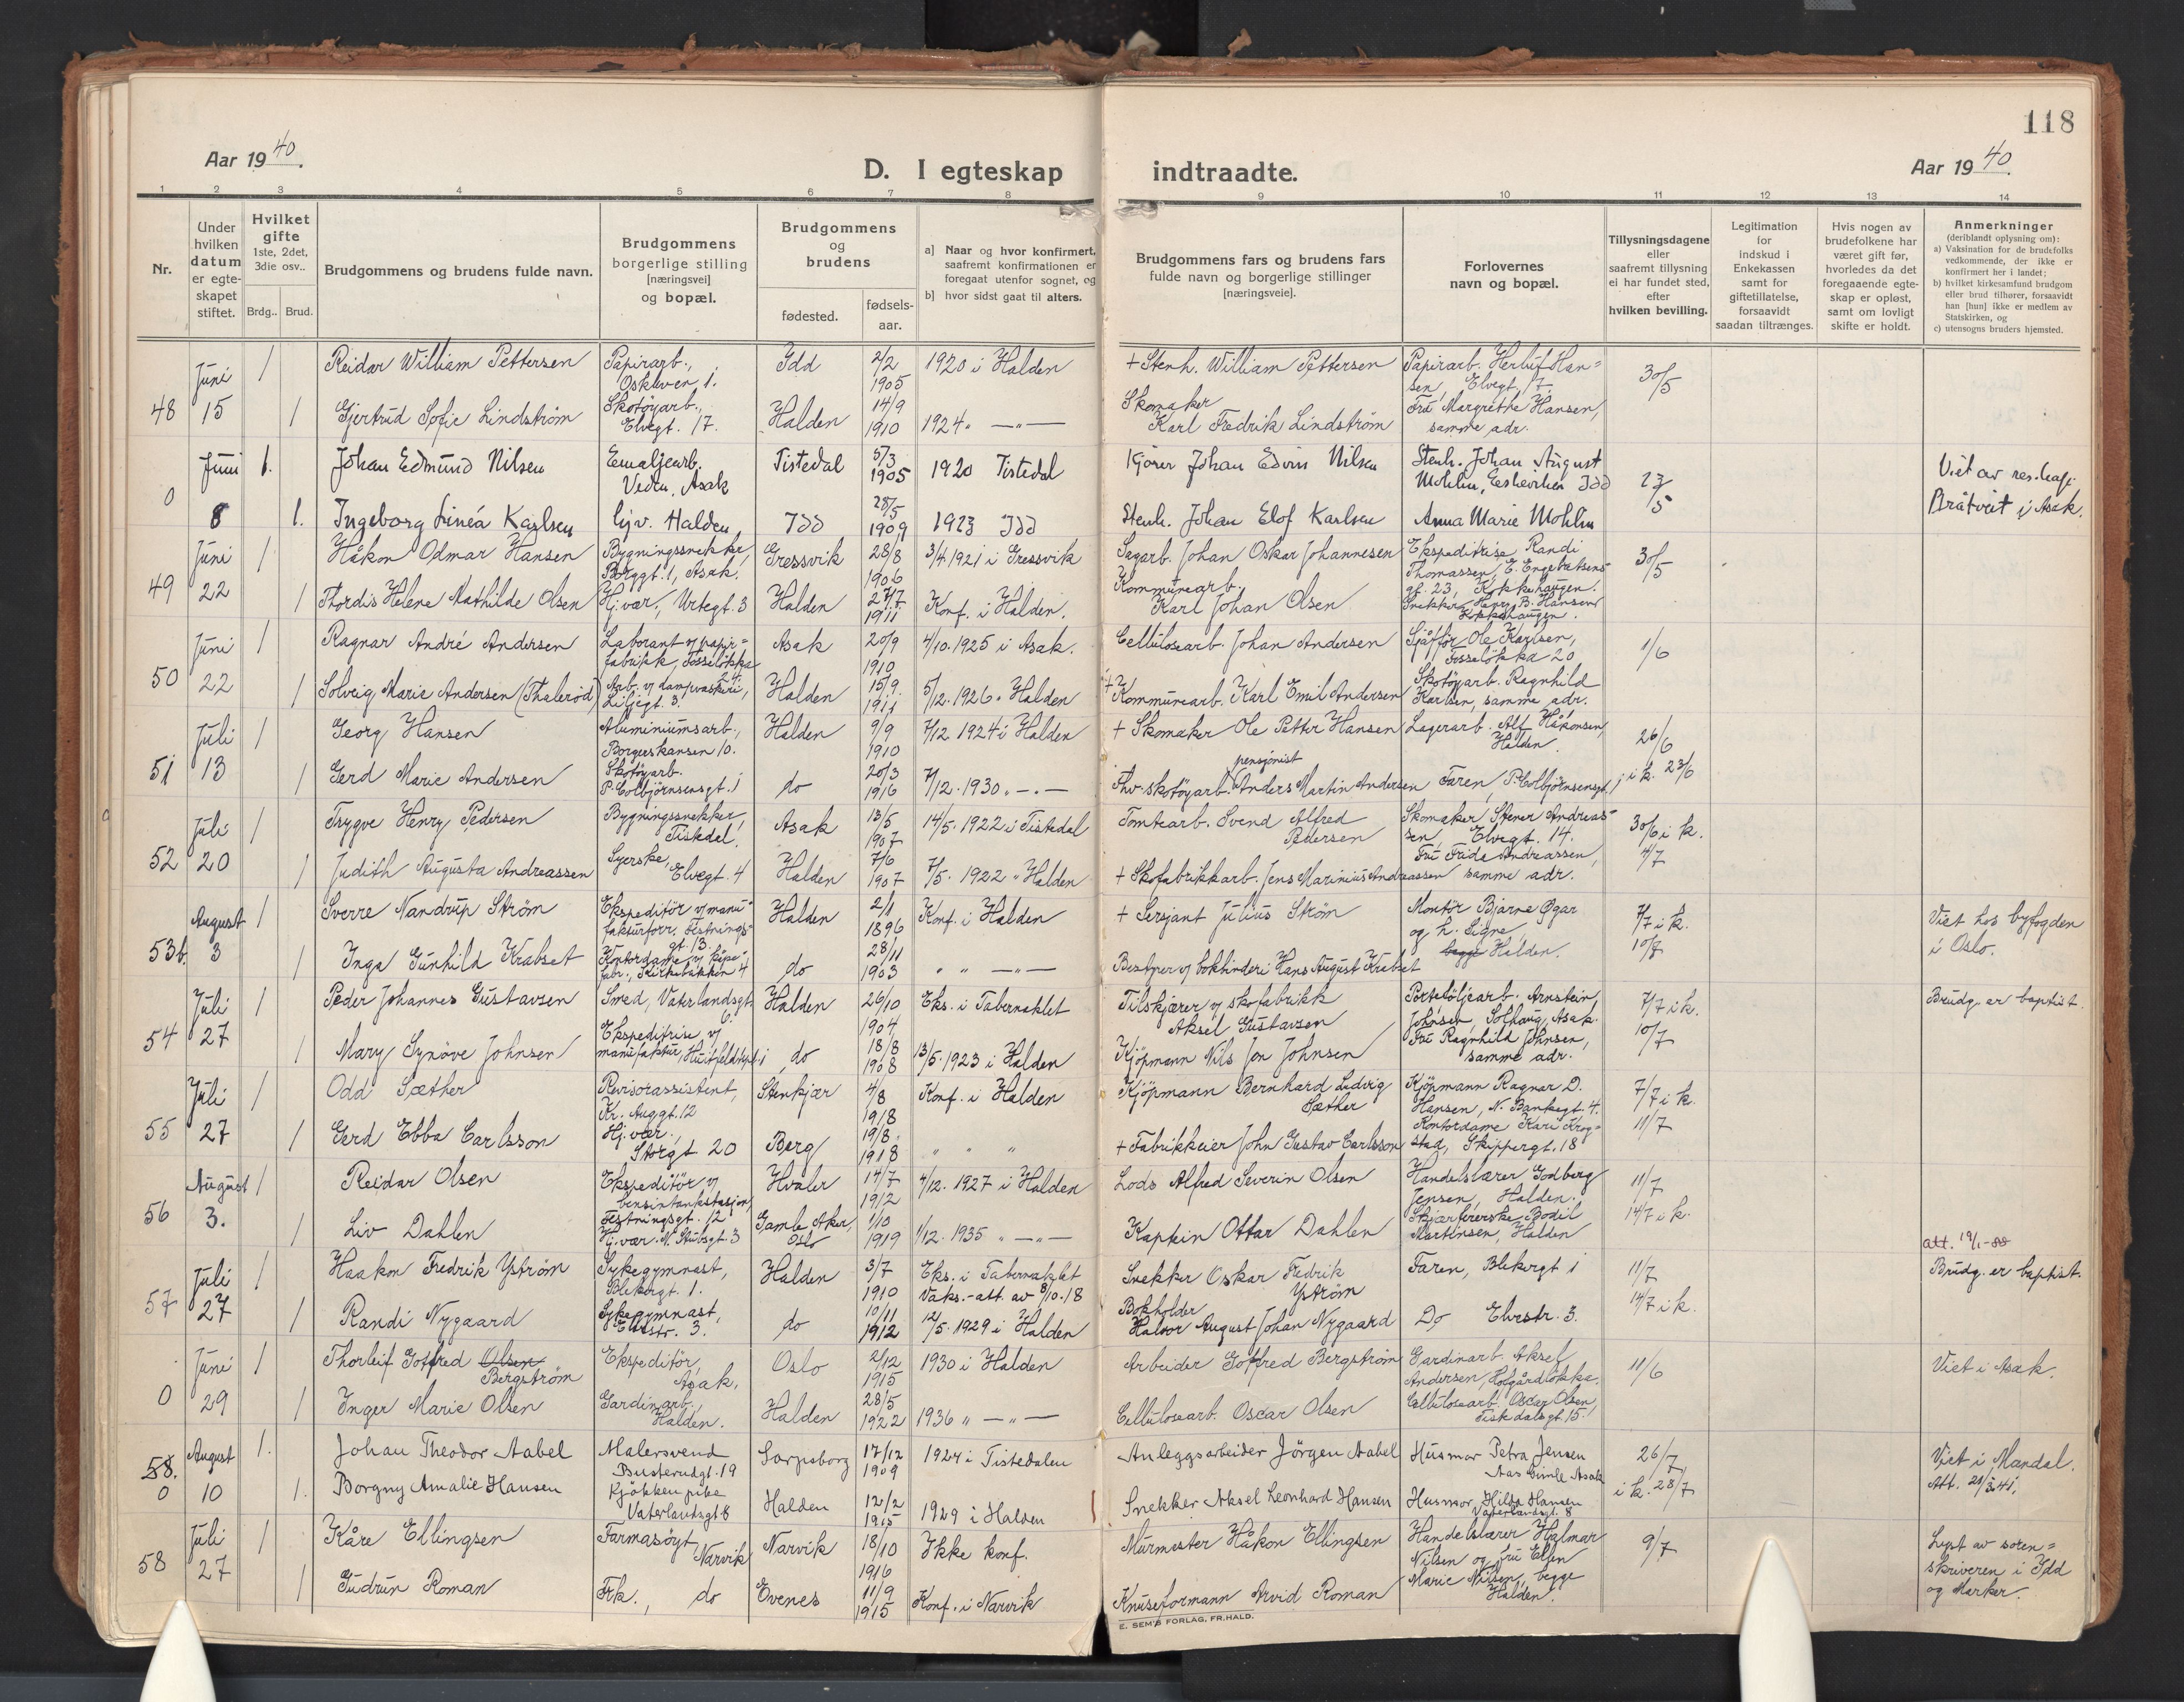 118
Aar 1940.
D. I egteskap indtraadte.
Aar 1940.
1 2 3 4 5 6 7 8 9 10 11 12 13 14
Nr.
Under hvilken datum er egteskapet stiftet.
Hvilket gifte 1ste, 2det, 3die osv..
Brdg.. Brud.
Brudgommens og brudens fulde navn.
Brudgommens borgerlige stilling [næringsvei] og bopæl.
Brudgommens og brudens
fødested.
fødsels-aar.
a] Naar og hvor konfirmert, saafremt konfirmationen er foregaat utenfor sognet, og
b] hvor sidst gaat til alters.
Brudgommens fars og brudens fars fulde navn og borgerlige stillinger [næringsveie].
Forlovernes navn og bopæl.
Tillysningsdagene eller saafremt tillysning ei har fundet sted, efter hvilken bevilling.
Legitimation for indskud i Enkekassen samt for giftetillatelse, forsaavidt saadan tiltrænges.
Hvis nogen av brudefolkene har været gift før, hvorledes da det foregaaende egteskap er opløst, samt om lovligt skifte er holdt.
Anmerkninger
(deriblandt oplysning om):
a) Vaksination for de brudefolks vedkommende, der ikke er konfirmert her i landet;
b) hvilket kirkesamfund brudgom eller brud tilhører, forsaavidt han [hun] ikke er medlem av Statskirken, og
c) utensogns bruders hjemsted.
48 Juni 15 1 Reidar William Pettersen Papirarb., Oskleven 1. Idd 2/2 1905 1920 i Halden + Stenh. William Pettersen Papirarb. Herluf Hansen, Elvegt. 17 30/5
1 Gjertrud Sofie Lindström Skotöyarb., Elvegt. 17. Halden 14/9 1910 1924 " — " — Skomaker Karl Fredrik Lindström Fru Margrethe Hansen, samme adr.
0 Juni 8 1. Johan Edmund Nilsen Emaljearb. Veden, Asak Tistedal 5/3 1905 1920 Tistedal Kjörer Johan Edvin Nilsen Stenh. Johan August Mohlin, Idd 23/5 Viet av res. kap. Bråtveit i Asak.
1. Ingeborg Linéa Karlsen Hjv. Halden Idd 28/5 1909 1923 Idd Stenh. Johan Elof Karlsen Anna Marie Mohlin
49 Juni 22 1 Håkon Odmar Hansen Bygningssnekker, Borggt. 1, Asak. Gressvik 28/8 1906 3/4 1921 i Gressvik Sagarb. Johan Oskar Johannesen Ekspeditrise Randi Thomassen, E. Engebretsens gt. 23, Kokkehaugen. 30/5
1 Thordis Helene Mathilde Olsen Hj.vær., Urtegt. 3 Halden 27/7 1911 Konf. i Halden. Kommunearb. Karl Johan Olsen Snekker Henry B. Hansen Kokkehaugen.
50 Juni 22 1 Ragnar André Andersen Laborant v/ papirfabrikk, Fosselökka 24. Asak 20/9 1910 4/10. 1925 i Asak. Cellulosearb. Johan Andersen Sjåfför Ole Karlsen, Fosselökka 20 1/6
1 Solveig Marie Andersen (Thaleröd) Arb. v/ dampvaskeri, Liljegt. 3. Halden 15/9 1911 5/12. 1926 " Halden + Kommunearb. Karl Emil Andersen Skotöyarb. Ragnhild Karlsen, samme adr.
51 Juli 13 1 Georg Hansen Aluminiumsarb., Borgerskansen 10. Halden 9/9 1910 7/12 1924 i Halden + Skomaker Ole Petter Hansen Lagerarb. Alf Håkonsen, Halden. 26/6
1 Gerd Marie Andersen Skotöyarb. P. Colbjörnsensgt. 1 do 20/3 1916 7/12. 1930 " — " — Fhv. skotöyarb. pensjonist Anders Martin Andersen Faren, P. Colbjörnsensgt. 1 i k. 23/6
52 Juli 20 1 Trygve Henry Pedersen Bygningssnekker, Tistedal. Asak 13/5 1907 14/5. 1922 i Tistedal Tomtearb. Svend Alfred Pedersen Skomaker Stener Andreassen, Elvegt. 14. 30/6 i k.
1 Judith Augusta Andreassen Syerske, Elvegt. 4 Halden 7/6 1907 7/5. 1922 " Halden + Skofabrikkarb. Jens Marinius Andreassen Fru Frida Andreassen, samme adr. 4/7
53b. August 3 1 Sverre Nandrup Ström Ekspeditör v/ manufakturforr. Festningsgt. 13. Halden 2/1 1896 Konf. i Halden + Sersjant Julius Ström Montör Bjarne Øgar og h. Signe, begge Halden. 7/7 i k. 10/7 Viet hos byfogden i Oslo.
1 Inga Gunhild Krabset Kontordame v/ kåpefabr., Kirkebakken 4 do 28/11 1903 " " — " — Bestyrer v/ bokbinderi Hans August Krabset
54 Juli 27 1 Peder Johannes Gustavsen Smed, Vaterlandsgt. 6. Halden 26/10 1904 Eks. i Tabernaklet Tilskjærer v/ skofabrikk Aksel Gustavsen Porteföljearb. Arnstein Johnsen, Solhaug, Asak. 7/7 i k. 10/7 Brudg. er baptist.
1 Mary Synöve Johnsen Ekspeditrise v/ manufaktur, Huitfeldtsgt. 1 do 18/8 1908 13/5. 1923 i Halden Kjöpmann Nils Jon Johnsen Fru Ragnhild Johnsen, samme adr.
55 Juli 27 1 Odd Sæther Revisorassistent, Kr. Auggt. 12 Stenkjær 4/8 1918 Konf. i Halden Kjöpmann Bernhard Ludvig Sæther Kjöpmann Ragnar D. Hansen, N. Bankegt. 4. 7/7 i k. 11/7
1 Gerd Ebba Carlsson Hj.vær., Storgt 20 Berg 19/8 1918 " " " + Fabrikkeier John Gustav Carlsson Kontordame Kari Krogstad, Skippergt. 18
56 August 3. 1 Reidar Olsen Ekspeditör v/ bensintankstasjon, Festningsgt. 12 Hvaler 14/7 1912 4/12. 1927 i Halden Lods Alfred Severin Olsen Handelslærer Godberg Jensen, Halden. 11/7
1 Liv Dahlen Hj.vær. N. Stubsgt. 3 Gamle Aker, Oslo 1/10 1919 1/12. 1935 " — " — Kaptein Ottar Dahlen Bodil Martinsen, Halden 14/7 i k.
57 Juli 27 1 Haakon Fredrik Yström Sykegymnast, Blekergt. 1. Halden 3/7 1910 Eks. i Tabernaklet Vaks.-att. av 8/10.18 Snekker Oskar Fredrik Yström Faren, Blekergt 1 11/7 att. 19/1-88 Brudg. er baptist.
1 Randi Nygaard Sykegymnast, Elvestr. 3. do 10/11 1912 12/5. 1929 i Halden Bokholder Halvor August Johan Nygaard Do Elvestr. 3. 14/7 i k.
0 Juni 29 1 Thorleif Gotfred Olsen Bergström Ekspeditör, Asak. Oslo 2/12 1915 1930 i Halden Arbeider Gotfred Bergström Gardinarb. Aksel Andersen, Hofgårdlökka. 11/6 Viet i Asak.
1 Inger Marie Olsen Gardinarb., Halden. Halden 28/5 1922 1936 " — " — Cellulosearb. Oscar Olsen Cellulosearb. Oscar Olsen, Tistedalsgt. 15.
58. 0 August 10 1. Johan Theodor Aabel Malersvend Busterudgt. 19 Sarpsborg 17/12 1909 1924 i Tistedalen Anleggsarbeider Jörgen Aabel Husmor Petra Jensen Aas Gimle Asak 26/7 Viet i Mandal. Att. 21/3.41.
1. Borgny Amalie Hansen Kjökkenpike Vaterlandsgt. 8 Halden 12/2 1915 1929 i Halden Snekker Aksel Leonhard Hansen Husmor Hilda Hansen Vaterlandsgt. 8 i k. 28/7
58 Juli 27 1 Kåre Ellingsen Farmasöyt, Narvik Narvik 18/10 1916 Ikke konf. Murmester Håkon Ellingsen Handelslærer Halmar Nilsen og fru Ellen Marie Nilsen, begge Halden. 9/7 Lyst av sorenskriveren i Idd og Marker.
1 Gudrun Roman Frk., do Evenes 11/9 1915 Konf. i Narvik Knuseformann Arvid Roman
E. SEM'S FORLAG, FR.HALD.